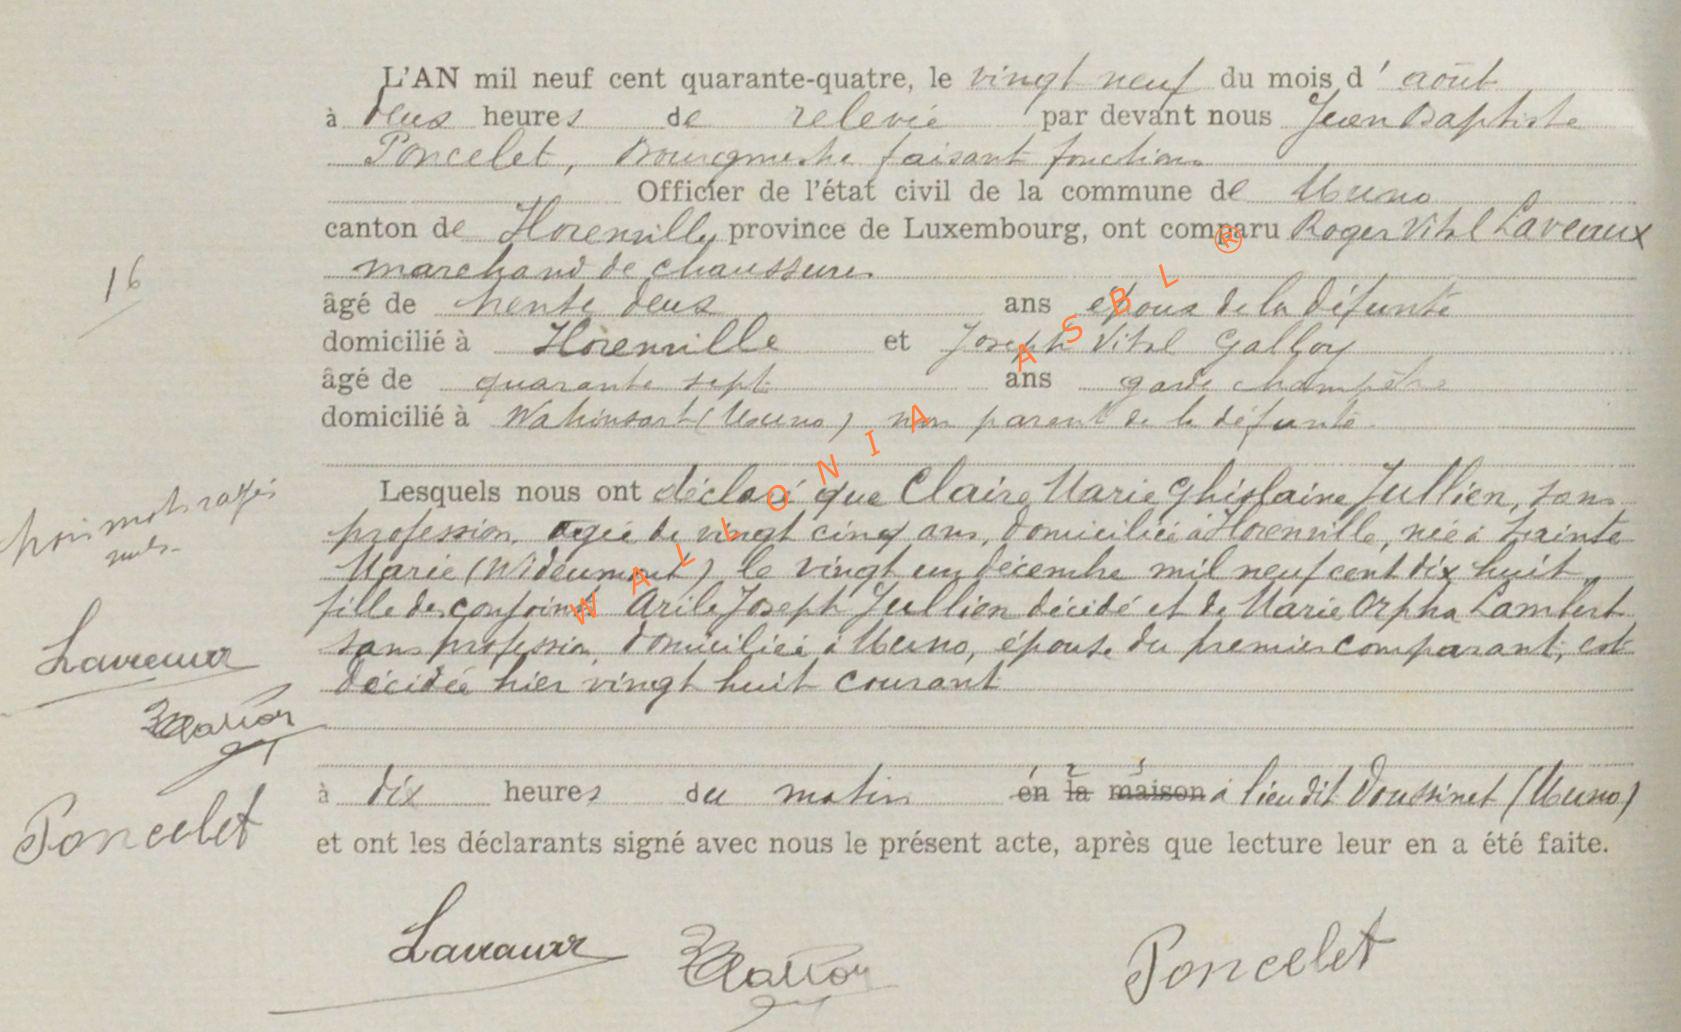 L'AN mil neuf cent quarante-quatre, le vingt neuf du mois d'août
à deux heures de relevée par devant nous Jean Baptiste
Poncelet, Bourgmestre faisant fonctions
Officier de l'état civil de la commune de Muno
canton de Florenville, province de Luxembourg, ont comparu Roger Vital Laveaux
marchand de chaussures
16
âgé de trente deux ans époux de la défunte
domicilié à Florenville et Joseph Vital Galloy
âgé de quarante sept ans garde champêtre
domicilié à Watrinsart (Muno) non parent de la défunte.
Lesquels nous ont déclaré que Claire Marie Ghislaine Jullien, sans
trois mots rayés
nuls
profession, agée de vingt cinq ans, domiciliée à Florenville, née à Sainte
Marie (Wideumont) le vingt un décembre mil neuf cent dix huit,
fille des conjoints Joseph Jullien décédé et de Marie Orpha Lambert
sans profession, domiciliée à Muno, épouse du premier comparant, est
décédée hier vingt huit courant
Laveaux
Galloy
Poncelet
à dix heures du matin en la maison à lieu dit Doussinet (Muno)
1 2 3
et ont les déclarants signé avec nous le présent acte, après que lecture leur en a été faite.
Laveaux Galloy Poncelet
WALLONIA ASBL ®